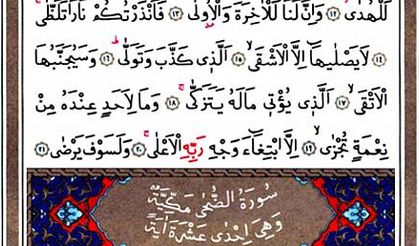 لَلْهُدٰىۘ ﴿١٢﴾ وَاِنَّ لَنَا لَلْاٰخِرَةَ وَالْاُو۫لٰى ﴿١٣﴾ فَاَنْذَرْتُكُمْ نَارًا تَلَظّٰىۚ
﴿١٤﴾ لَا يَصْلٰيهَٓا اِلَّا الْاَشْقٰىۙ ﴿١٥﴾ اَلَّذ۪ي كَذَّبَ وَتَوَلّٰىۜ ﴿١٦﴾ وَسَيُجَنَّبُهَا
الْاَتْقٰىۙ ﴿١٧﴾ اَلَّذ۪ي يُؤْت۪ي مَالَهُ يَتَزَكّٰىۚ ﴿١٨﴾ وَمَا لِاَحَدٍ عِنْدَهُ مِنْ
نِعْمَةٍ تُجْزٰىۙ ﴿١٩﴾ اِلَّا ابْتِغَٓاءَ وَجْهِ رَبِّهِ الْاَعْلٰىۚ ﴿٢٠﴾ وَلَسَوْفَ يَرْضٰى ﴿٢١﴾
سُورَةُ الضُّحٰى مَكِّيَّةٌ
وَهِيَ اِحْدٰى عَشْرَةَ اٰيَةً